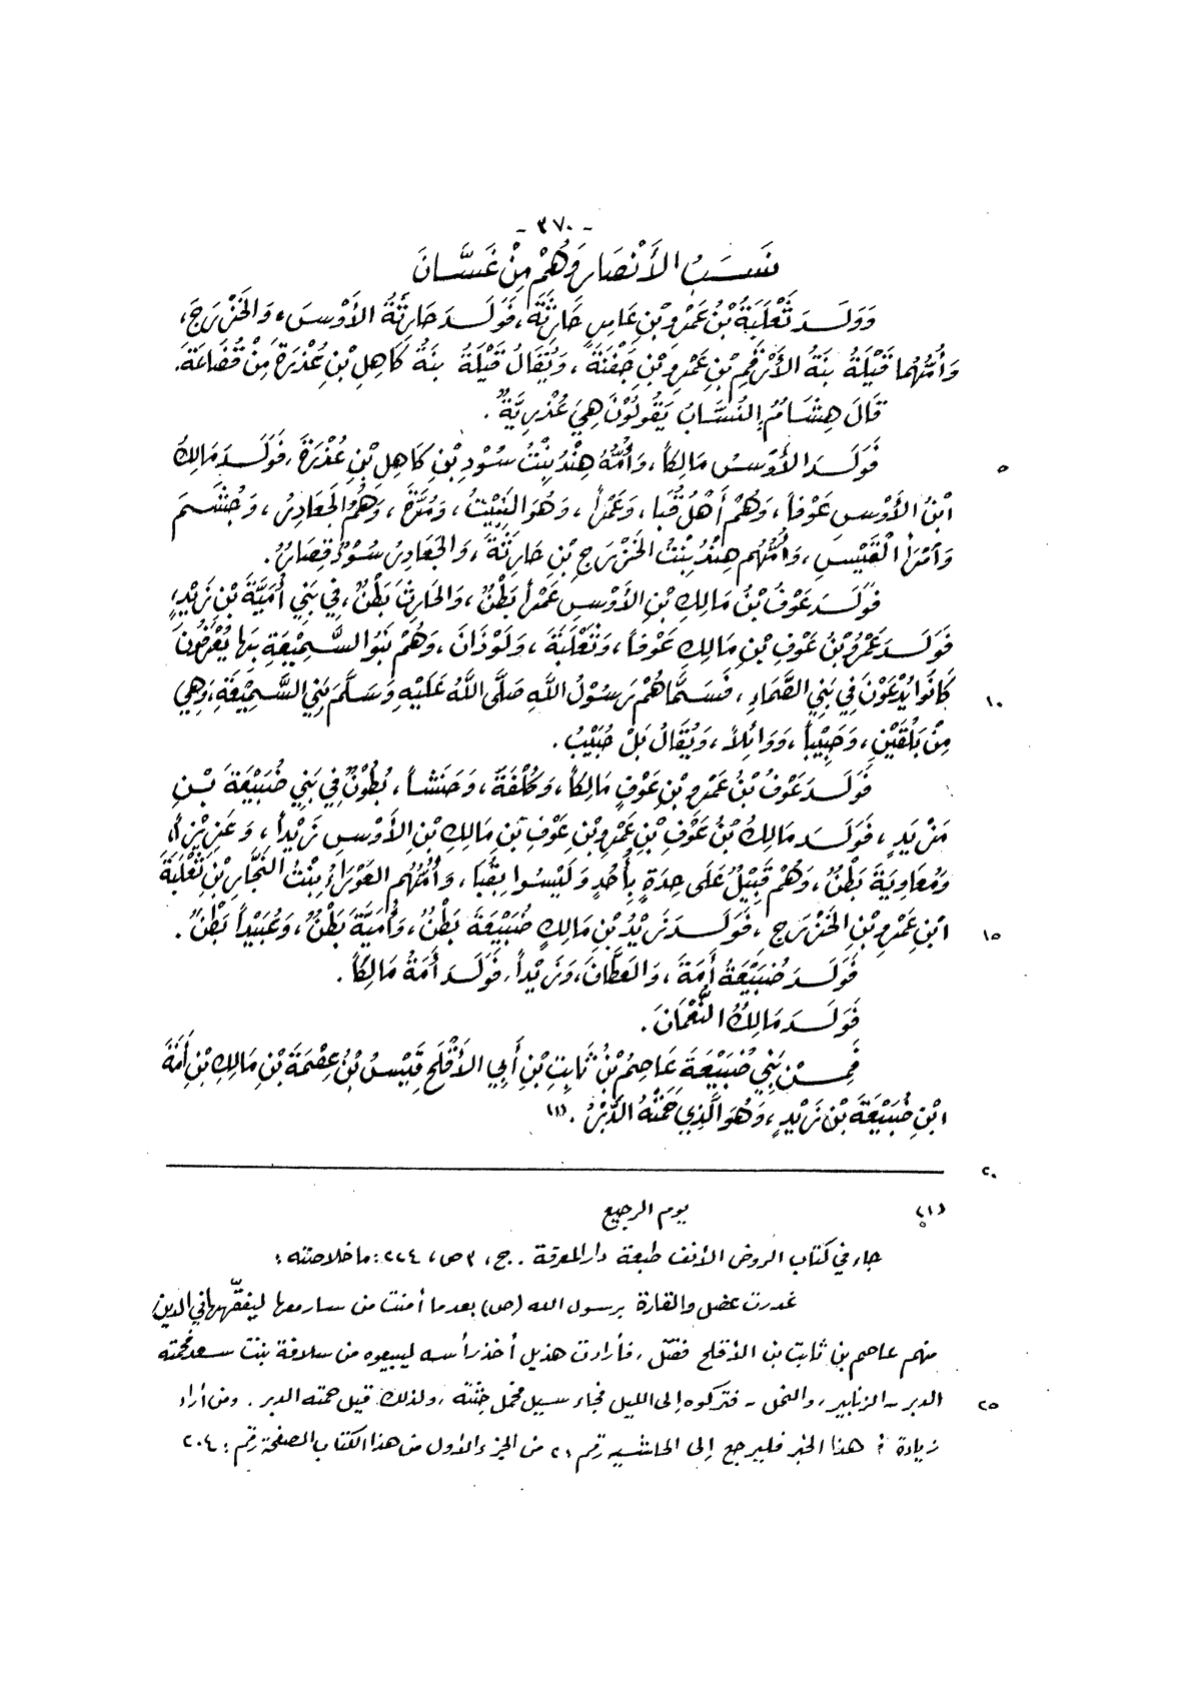 - ٣٧٠ -
نَسَبُ الأَنْصَارِ وَهُمْ مِنْ غَسَّانَ
وَوَلَدَ ثَعْلَبَةُ بْنُ عَمْرِو بْنِ عَامِرٍ حَارِثَةَ، فَوَلَدَ حَارِثَةُ الأَوْسَ، وَالخَزْرَجَ،
وَأُمُّهُما قَيْلَةُ بِنَةُ الأَرْقَمِ بْنِ عَمْرِو بْنِ جَفْنَةَ، وَيُقَالُ قَيْلَةُ بِنَةُ كَاهِلِ بْنِ عُذْرَةَ مِنْ قُضَاعَةَ.
قَالَ هِشَامٌ: النُّسَّابُ يَقُولُوْنَ هِيَ عُذْرِيَّةٌ.
٥
فَوَلَدَ الأَوْسُ مَالِكاً، وَأُمُّهُ هِنْدُ بِنْتُ سُوْدِ بْنِ كَاهِلِ بْنِ عُذْرَةَ، فَوَلَدَ مَالِكُ
ابْنُ الأَوْسِ عَوْفاً، وَهُمْ أَهْلُ قُبَا، وَعَمْراً، وَهُوَ النَّبِيْتُ، وَمُرَّةَ، وَهُمُ الجَعَادِرُ، وَجُشَمَ
وَامْرَأَ الْقَيْسِ، وَأُمُّهُم هِنْدُ بِنْتُ الخَزْرَجِ بْنِ حَارِثَةَ، وَالجَعَادِرُ سُوْدٌ قِصَارٌ.
فَوَلَدَ عَوْفُ بْنُ مَالِكِ بْنِ الأَوْسِ عَمْراً بَطْنٌ، وَالحَارِثَ بَطْنٌ، فِي بَنِي أُمَيَّةَ بْنِ زَيْدٍ،
فَوَلَدَ عَمْرُو بْنُ عَوْفِ بْنِ مَالِكٍ عَوْفاً، وَثَعْلَبَةَ، وَلَوْذَانَ، وَهُمْ بَنُو السَّمِيْعَةِ بِهَا يُعْرَفُونَ
كَانُوا يُدْعَوْنَ فِي بَنِي الصَّمَّاءِ، فَسَمَّاهُمْ رَسُوْلُ اللَّهِ صَلَّى اللَّهُ عَلَيْهِ وَسَلَّمَ بَنِي السَّمِيْعَةِ، وَهِي
١٠
مِنْ بَلْقَيْنِ، وَحَبِيْباً، وَوَائِلاً، وَيُقَالُ بَلْ حُبَيْبُ.
فَوَلَدَ عَوْفُ بْنُ عَمْرِو بْنِ عَوْفٍ مَالِكاً، وَكُلْفَةَ، وَحَنَشاً، بُطُوْنٌ فِي بَنِي ضُبَيْعَةَ بْنِ
زَيْدٍ، فَوَلَدَ مَالِكُ بْنُ عَوْفِ بْنِ عَمْرِو بْنِ عَوْفِ بْنِ مَالِكِ بْنِ الأَوْسِ زَيْداً، وَعَزِيْزاً،
وَمُعَاوِيَةَ بَطْنٌ، وَهُمْ قَبِيْلٌ عَلَى حِدَةٍ بِأُحُدٍ وَلَيْسُوا بِقُبَا، وَأُمُّهُم العَوْرَاءُ بِنْتُ النَّجَّارِ بْنِ ثَعْلَبَةَ
ابْنِ عَمْرِو بْنِ الخَزْرَجِ، فَوَلَدَ زَيْدُ بْنِ مَالِكٍ ضُبَيْعَةَ بَطْنٌ، وَأُمَيَّةَ بَطْنٌ، وَعُبَيْداً بَطْنٌ.
١٥
فَوَلَدَ ضُبَيْعَةُ أَمَةَ، وَالعَطَّافَ، وَزَيْداً، فَوَلَدَ أَمَةُ مَالِكاً.
فَوَلَدَ مَالِكٌ النُّعْمَانَ.
فَمِنْ بَنِي ضُبَيْعَةَ عَاصِمُ بْنُ ثَابِتِ بْنِ أَبِي الأَقْلَحِ قَيْسُ بْنُ عِصْمَةَ بْنِ مَالِكِ بْنِ أَمَةَ
ابْنِ ضُبَيْعَةَ بْنِ زَيْدٍ، وَهُوَ الَّذِي حَمَتْهُ الدَّبْرُ. (١)
٢٠
(١) يوم الرجيع
جاء في كتاب الروض الأنف طبعة دار المعرفة . ج، ٣ ص، ٢٢٤: ما خلاصته:
غدرت عضل والقارة برسول الله (ص) بعدما أمنت من سار معها ليفقّههما في الدين
منهم عاصم بن ثابت بن الأقلح فقتل، فأرادت هذيل أخذ رأسه ليبيعوه من سلافة بنت سعد فحمته
الدبر - الزنابير، والنحل - فتركوه إلى الليل فجاء سيل فحمل جثته، ولذلك قيل حمته الدبر. ومن أراد
٢٥
زيادة في هذا الخبر فليرجع إلى الحاشيه رقم: ٢ من الجزء الأول من هذا الكتاب الصفحة رقم: ٢٠٤